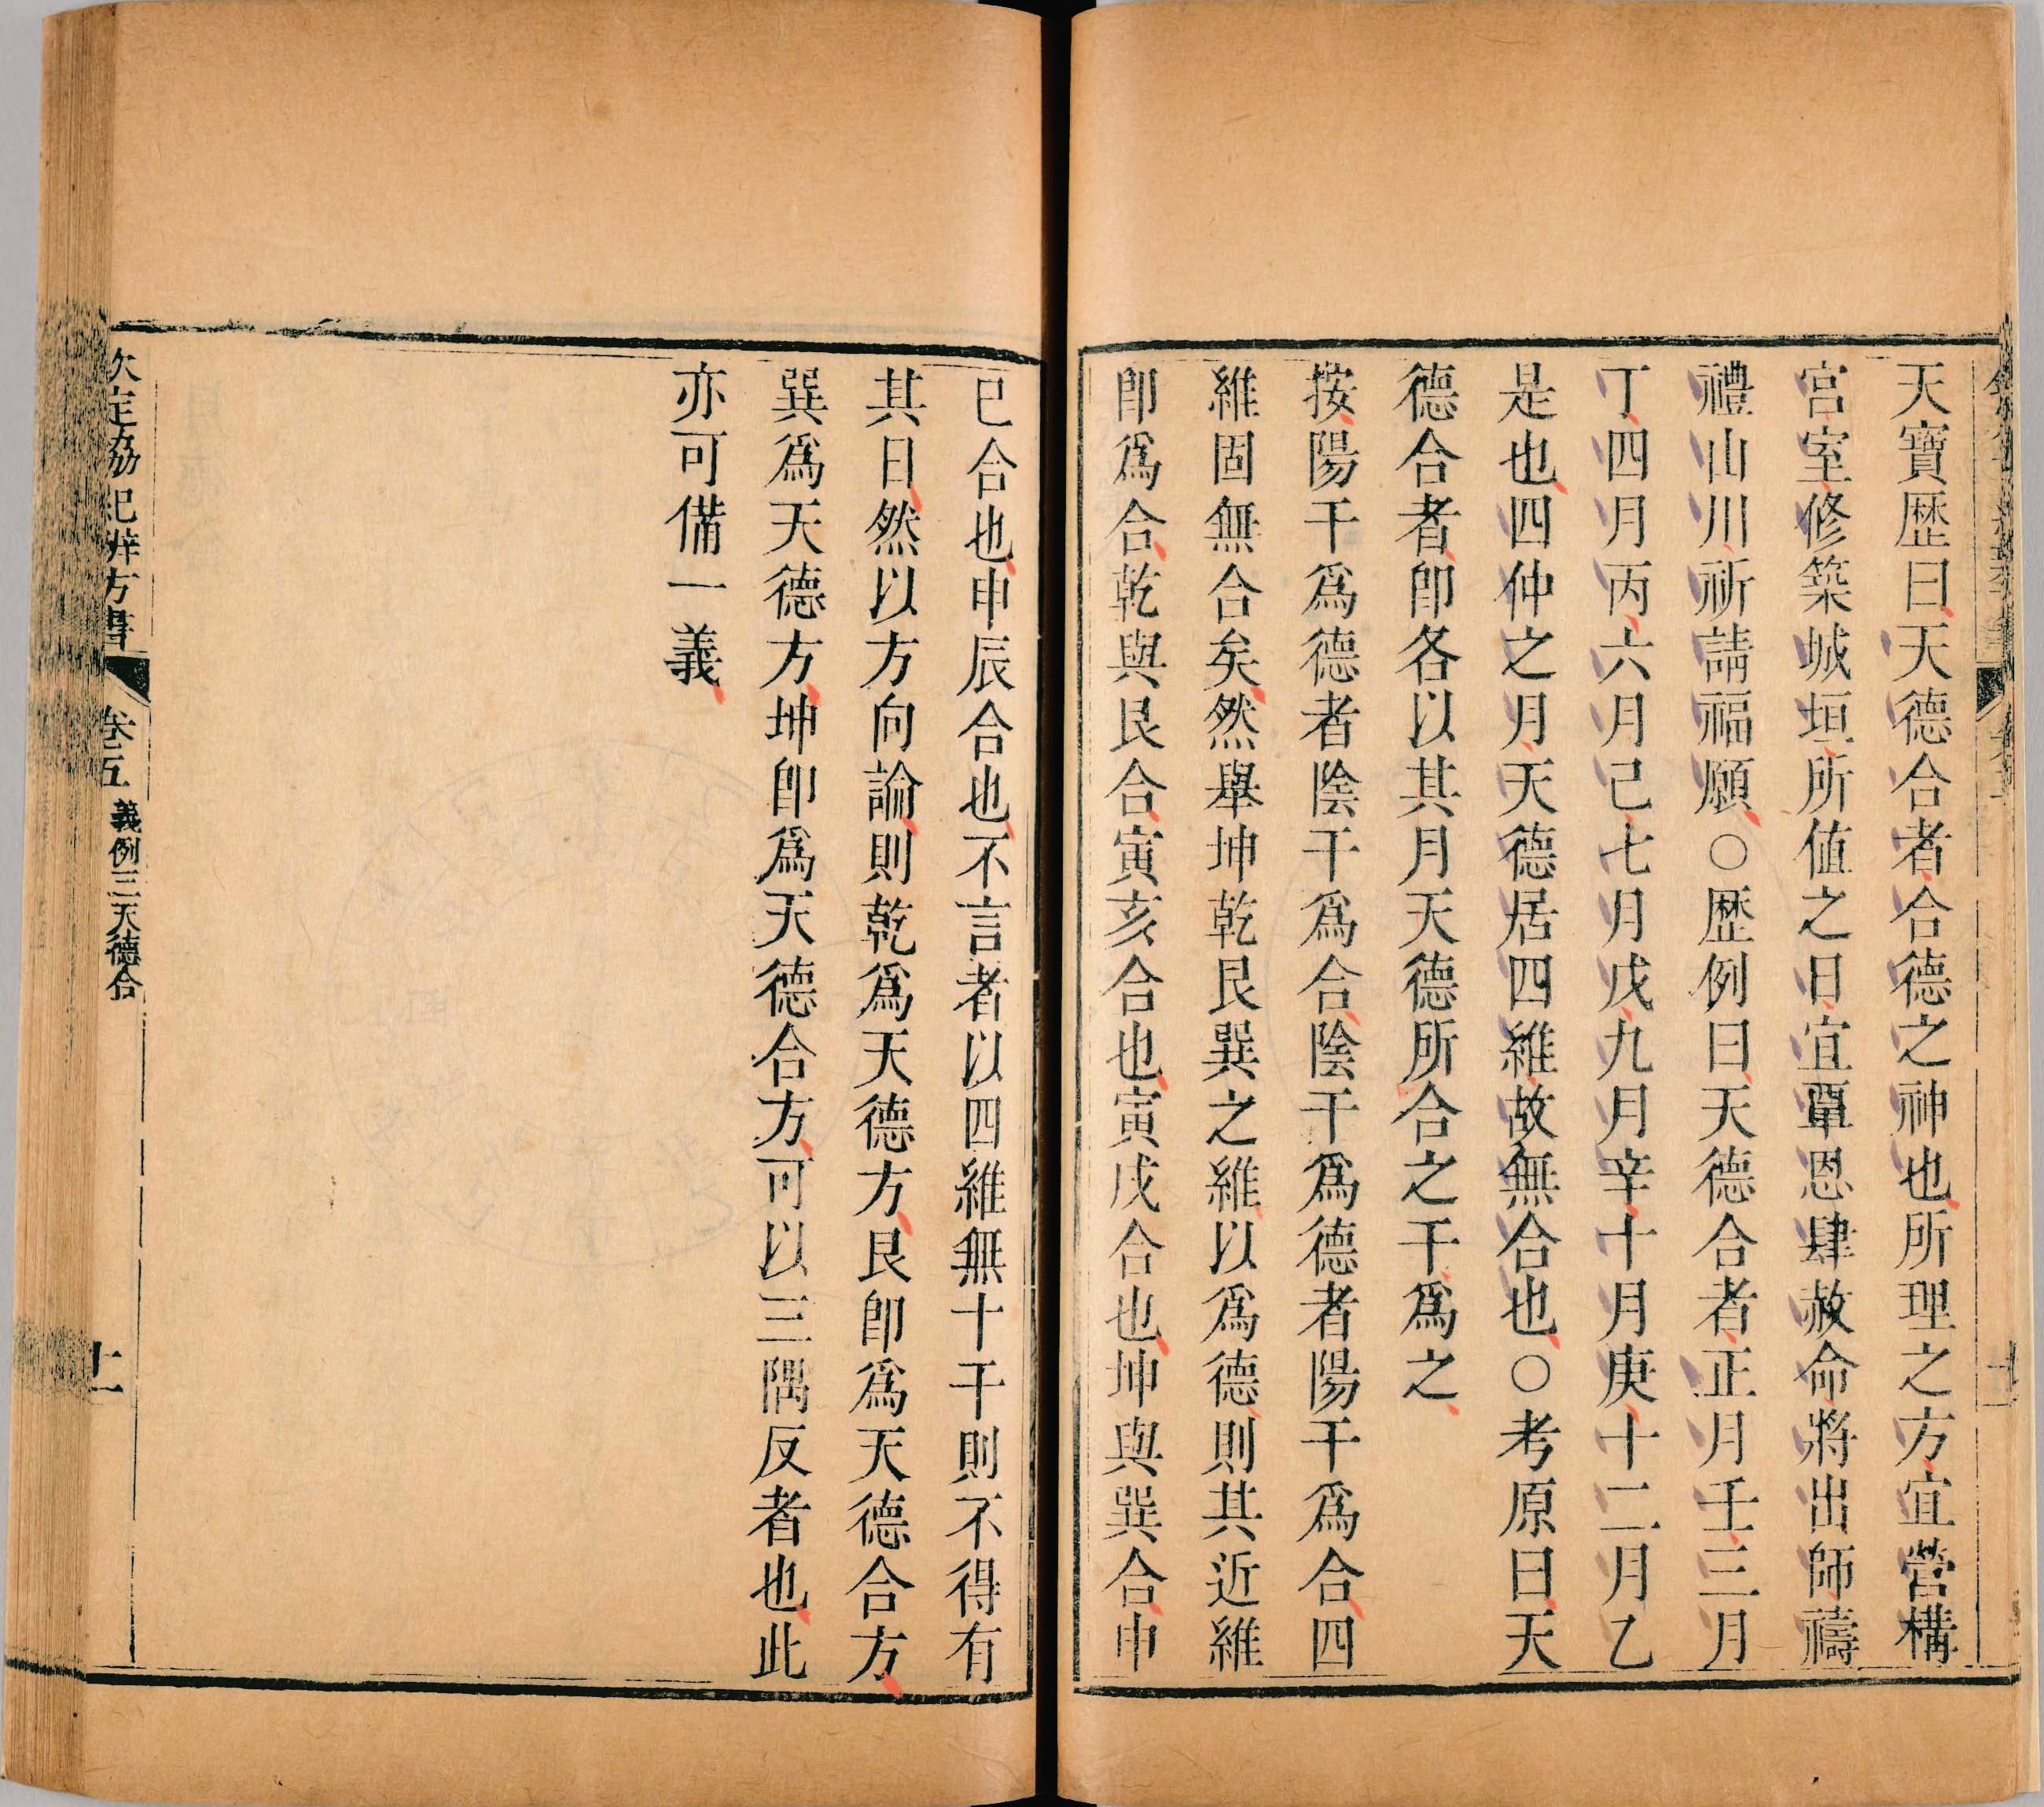 天寶歴曰天德合者合德之神也所理之方宜營構
宫室修築城垣所值之日宜覃恩肆赦命將出師禱
禮山川祈請福願○歴例曰天德合者正月壬三月
丁四月丙六月己七月戊九月辛十月庚十二月乙
是也四仲之月天德居四維故無合也○考原曰天
德合者卽各以其月天德所合之干爲之
按陽干爲德者陰干爲合陰干爲德者陽干爲合四
維固無合矣然舉坤乾艮巽之維以爲德則其近維
卽爲合乾與艮合寅亥合也寅戌合也坤與巽合申
巳合也申辰合也不言者以四維無十干則不得有
其日然以方向論則乾爲天德方艮卽爲天德合方
巽爲天德方坤卽爲天德合方可以三隅反者也此
亦可備一義
欽定協紀辨方書 卷五 義例三天德合 十一